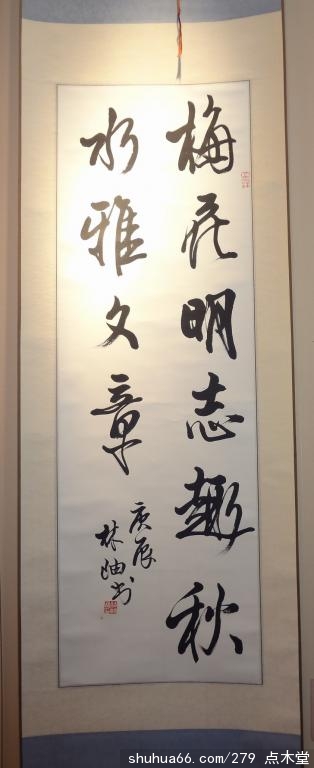 梅花明志趣秋
水雅文章
庚辰
林岫书
shuhua66.com/279 点木堂